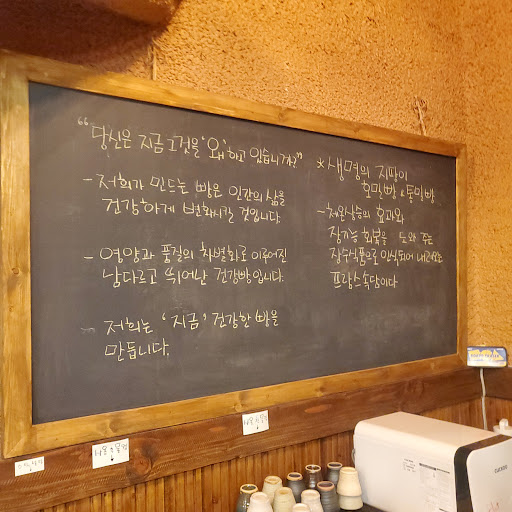 "당신은 지금 그것을 '왜' 하고 있습니까?"
- 저희가 만드는 빵은 인간의 삶을
건강하게 변화시킬 것입니다
- 영양과 품질의 차별화로 이루어진
남다르고 뛰어난 건강빵입니다.
- 저희는 '지금' 건강한 빵을
만듭니다.
* 생명의 지팡이
호밀빵 & 통밀빵
- 체온상승의 효과와
장기능 회복을 도와 주는
장수식품으로 인식되어 내려오는
프랑스속담이다